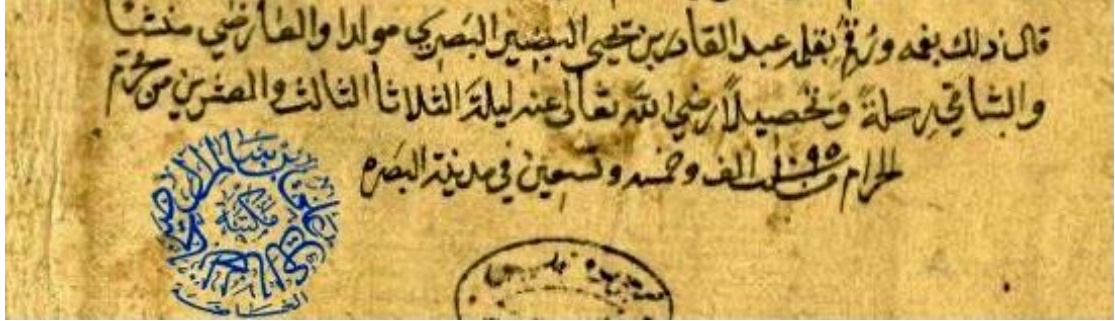 قال ذلك بفمه ورقم بقلمه عبد القادر بن يحيى البصير البصري مولدا والعارضي منشئا
والشافي رحلة وتحصيلا رضي الله تعالى عنه ليلة الثلاثا الثالث والعشرين من محرم
الحرام سنة ١٠٩٥ الف وخمسه وتسعين في مدينة البصره
مكتبة
الخاصة